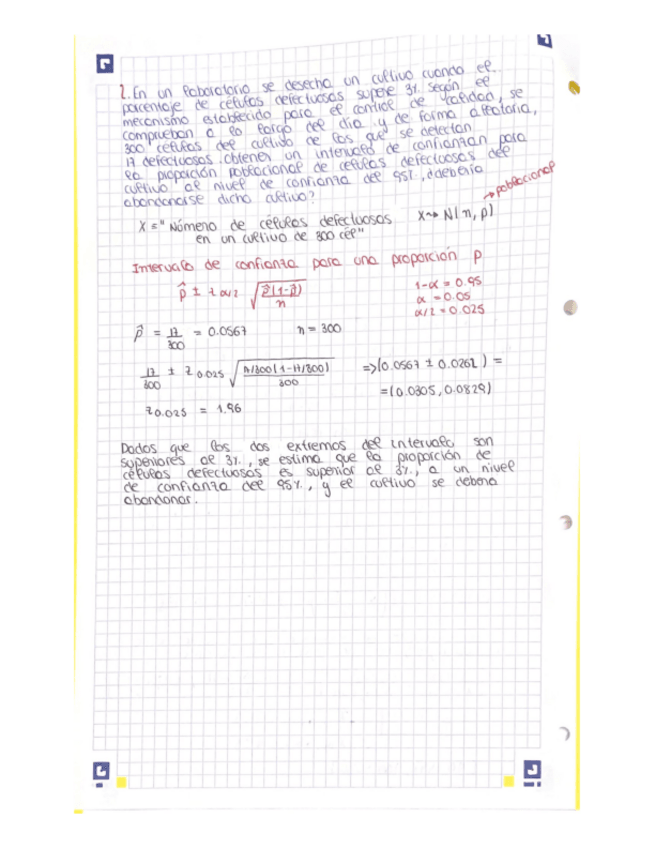 2. En un laboratorio se desecha un cultivo cuando el
porcentaje de células defectuosas supere 3%. según el
mecanismo establecido para el control de calidad, se
comprueban a lo largo del día y de forma aleatoria,
300 células del cultivo de las que se detectan
17 defectuosas. obtener un intervalo de confianzan para
la proporción poblacional de células defectuosas del
cultivo al nivel de confianza del 95%, ¿debería
abandonarse dicho cultivo?
→ poblacional
X = "Número de células defectuosas X ~> N( n, p)
en un cultivo de 300 cél"
Intervalo de confianza para una proporción p
p̂ ± z α/2 √ p̂(1-p̂) / n
1-α = 0.95
α = 0.05
α/2 = 0.025
p̂ = 17/300 = 0.0567 n = 300
17/300 ± z 0.025 √ 17/300(1-17/300) / 300 =>(0.0567 ± 0.0262) =
=(0.0305, 0.0829)
z0.025 = 1.96
Dados que los dos extremos del intervalo son
superiores al 3%, se estima que la proporción de
células defectuosas es superior al 3%, a un nivel
de confianza del 95%, y el cultivo se debería
abandonar.